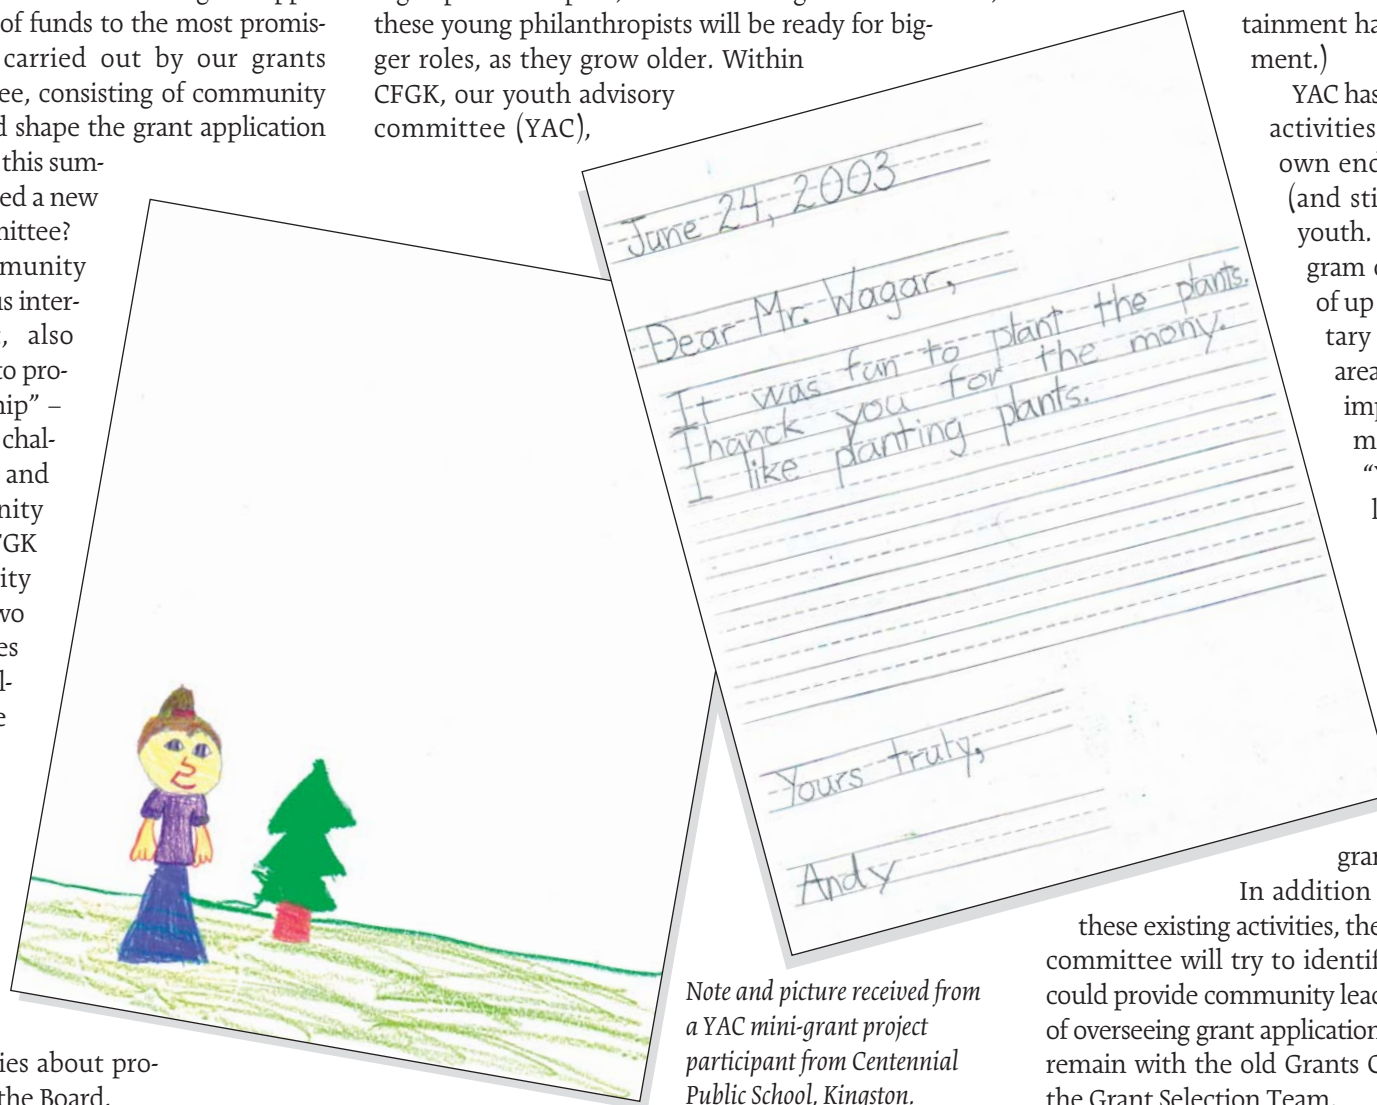 of funds to the most promis-
carried out by our grants
ee, consisting of community
d shape the grant application
this sum-
ed a new
mittee?
munity
us inter-
, also
to pro-
hip” –
chal-
and
nity
FGK
ity
wo
es
l-
e
ies about pro-
the Board.
these young philanthropists will be ready for big-
ger roles, as they grow older. Within
CFGK, our youth advisory
committee (YAC),
June 24, 2003
Dear Mr. Wagar,
It was fun to plant the plants.
Thanck you for the mony.
I like planting plants.
Yours truty,
Andy
Note and picture received from
a YAC mini-grant project
participant from Centennial
Public School, Kingston.
tainment ha
ment.)
YAC has
activities
own end
(and sti
youth.
gram
of up
tary
area
imp
m
gran
In addition
these existing activities, the
committee will try to identif
could provide community lead
of overseeing grant application
remain with the old Grants C
the Grant Selection Team.